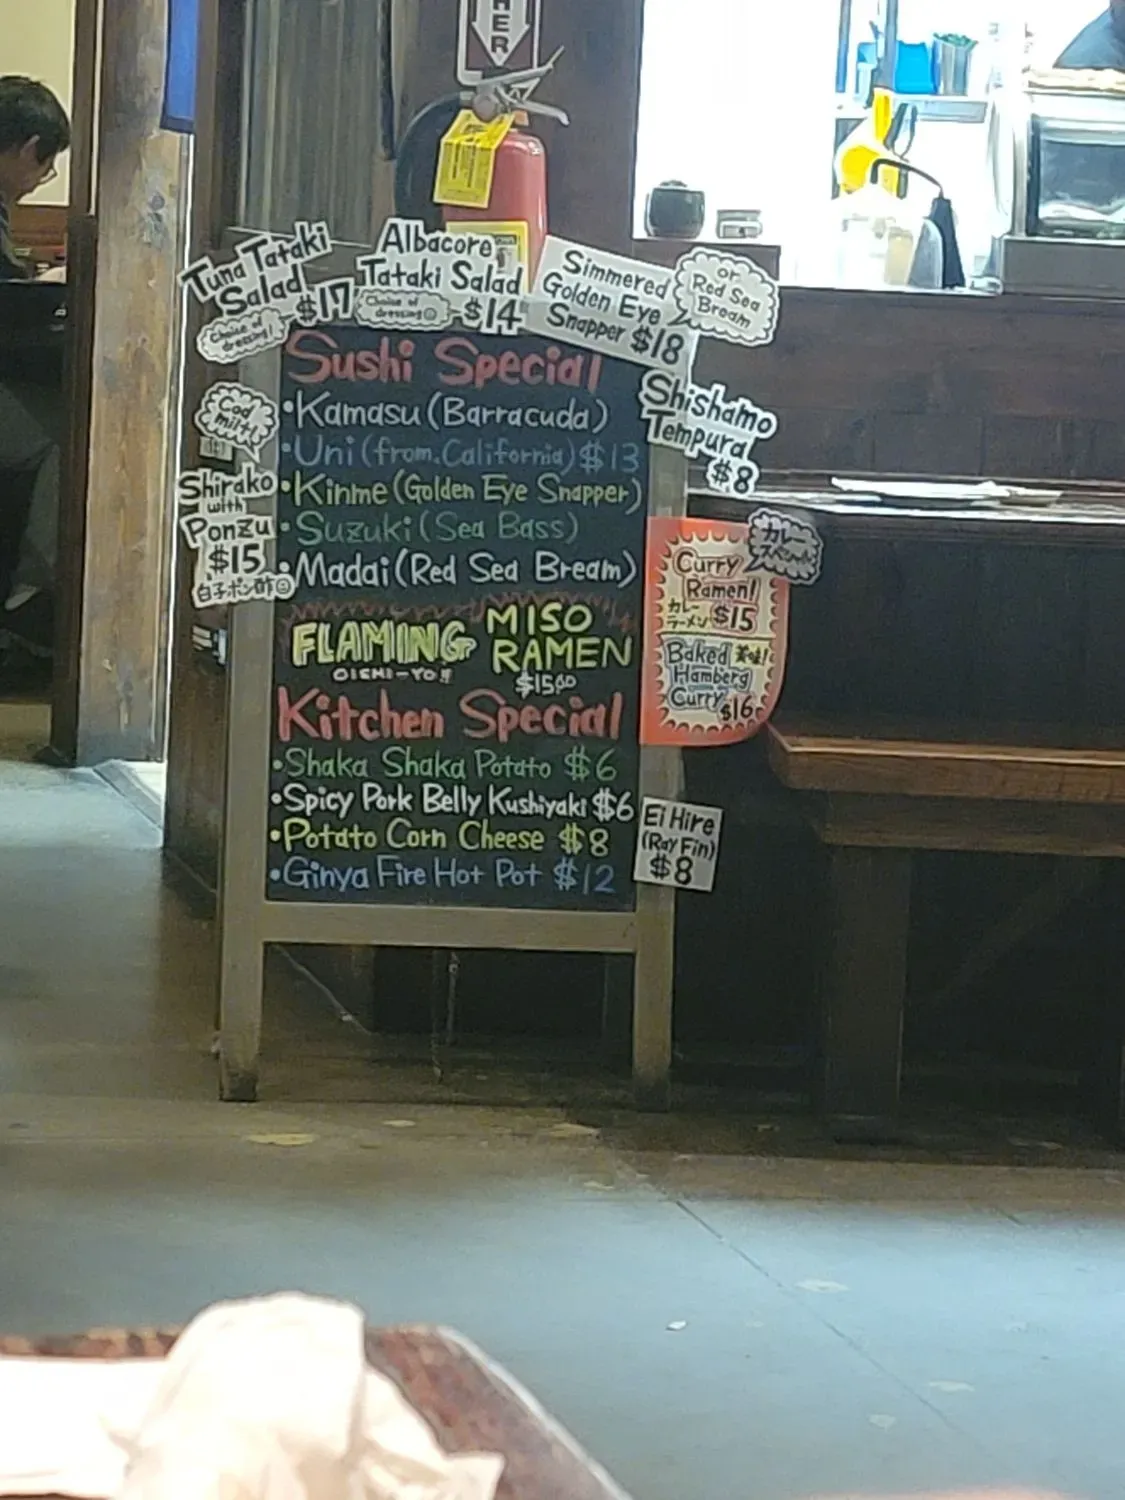 HER
Tuna Tataki
Salad
$17
Choice of
dressing!
Albacore
Tataki Salad
Choice of
dressing☺
$14
Simmered
Golden Eye
Snapper $18
or
Red Sea
Bream
Sushi Special
•Kamasu (Barracuda)
•Uni (from.California) $13
•Kinme (Golden Eye Snapper)
•Suzuki (Sea Bass)
•Madai (Red Sea Bream)
Shishamo
Tempura
$8
Cod
milt!
Shirako
with
Ponzu
$15
白子ポン酢☺
カレー
スペシャル
Curry
Ramen!
カレー
ラーメン $15
Baked 美味!
Hamberg
Curry $16
FLAMING MISO
RAMEN
OICHI-YO!!
$15.00
Kitchen Special
•Shaka Shaka Potato $6
•Spicy Pork Belly Kushiyaki $6
•Potato Corn Cheese $8
•Ginya Fire Hot Pot $12
Ei Hire
(Ray Fin)
$8